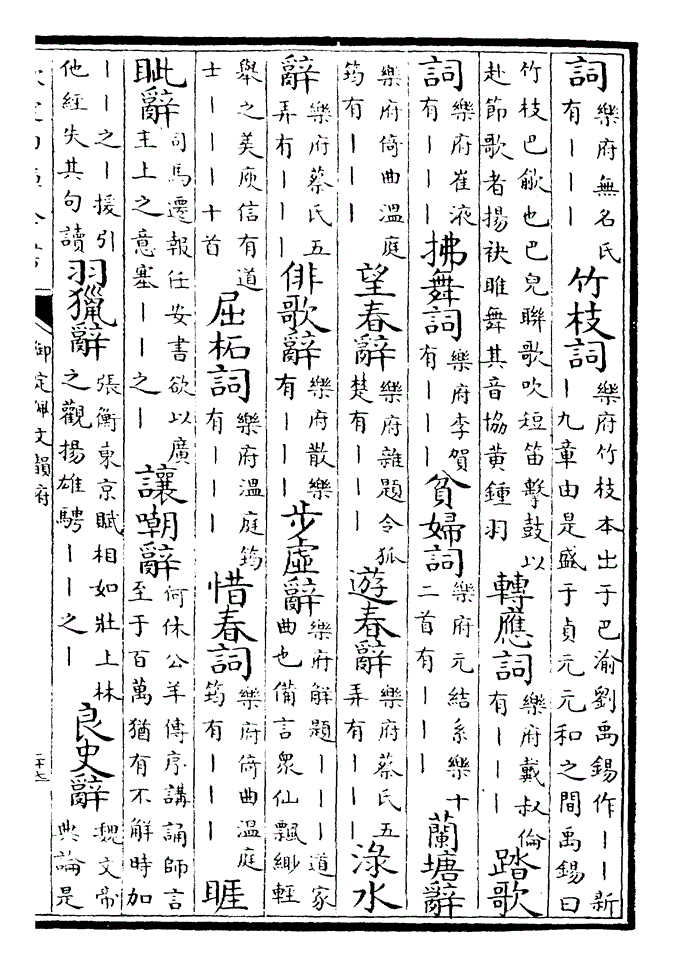 詞樂府無名氏有｜｜｜竹枝詞樂府竹枝本出于巴渝劉禹錫作｜｜新｜九章由是盛于貞元元和之間禹錫曰
竹枝巴歈也巴兒聯歌吹短笛擊鼓以赴節歌者揚袂睢舞其音協黃鍾羽轉應詞樂府戴叔倫有｜｜｜踏歌
詞樂府崔液有｜｜｜拂舞詞樂府李賀有｜｜｜貧婦詞樂府元結系樂十二首有｜｜｜蘭塘辭
樂府倚曲溫庭筠有｜｜｜望春辭樂府雜題令狐楚有｜｜｜遊春辭樂府蔡氏五弄有｜｜｜淥水
辭樂府蔡氏五弄有｜｜｜俳歌辭樂府散樂有｜｜｜步虛辭樂府解題｜｜｜道家曲也備言眾仙飄緲輕
舉之美庾信有道士｜｜｜十首屈柘詞樂府溫庭筠有｜｜｜惜春詞樂府倚曲溫庭筠有｜｜｜睚
眦辭司馬遷報任安書欲以廣主上之意塞｜｜之｜讓嘲辭何休公羊傳序講誦師言至于百萬猶有不解時加
｜｜之｜援引他經失其句讀羽獵辭張衡東京賦相如壯上林之觀揚雄騁｜｜之｜良史辭魏文帝典論是
御定佩文韻府